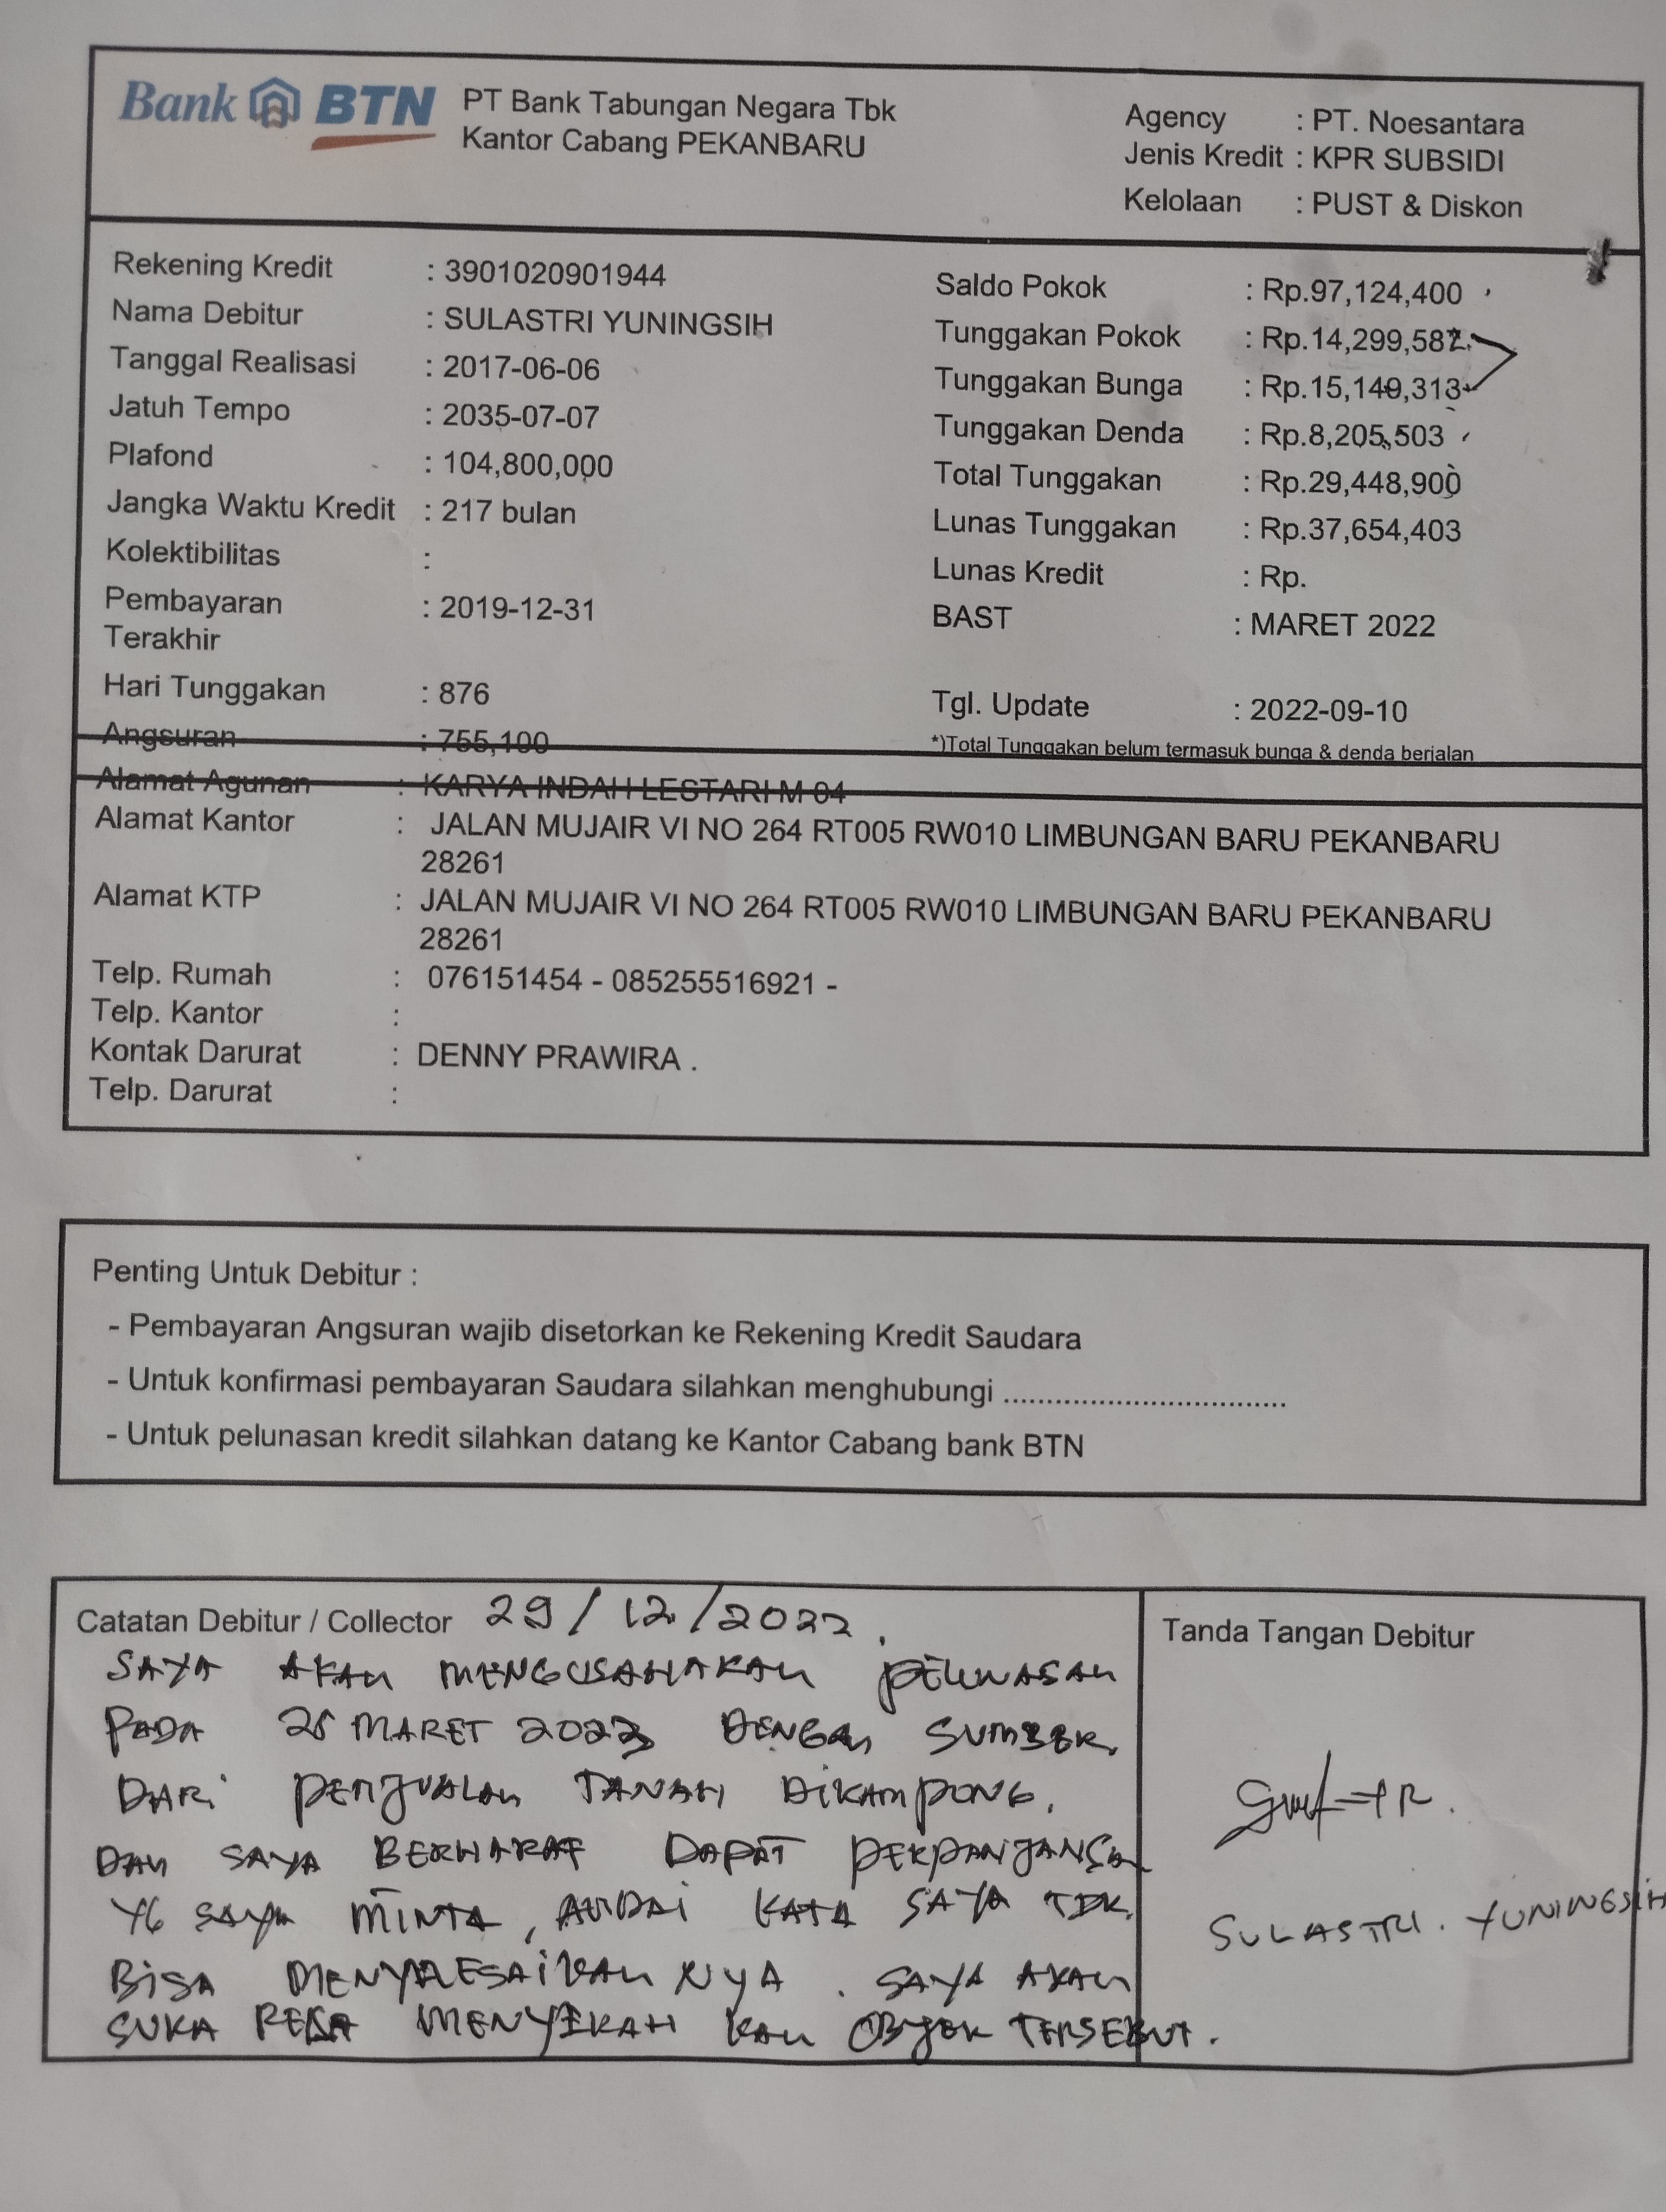 Bank BTN PT Bank Tabungan Negara Tbk
Kantor Cabang PEKANBARU
Agency : PT. Noesantara
Jenis Kredit : KPR SUBSIDI
Kelolaan : PUST & Diskon
Rekening Kredit : 3901020901944
Nama Debitur : SULASTRI YUNINGSIH
Tanggal Realisasi : 2017-06-06
Jatuh Tempo : 2035-07-07
Plafond : 104,800,000
Jangka Waktu Kredit : 217 bulan
Kolektibilitas :
Pembayaran : 2019-12-31
Terakhir
Hari Tunggakan : 876
Angsuran : 755,100
Saldo Pokok : Rp.97,124,400
Tunggakan Pokok : Rp.14,299,587
Tunggakan Bunga : Rp.15,149,313
Tunggakan Denda : Rp.8,205,503
Total Tunggakan : Rp.29,448,900
Lunas Tunggakan : Rp.37,654,403
Lunas Kredit : Rp.
BAST : MARET 2022
Tgl. Update : 2022-09-10
*)Total Tunggakan belum termasuk bunga & denda berjalan
Alamat Agunan : KARYA INDAH LESTARI M 04
Alamat Kantor : JALAN MUJAIR VI NO 264 RT005 RW010 LIMBUNGAN BARU PEKANBARU
28261
Alamat KTP : JALAN MUJAIR VI NO 264 RT005 RW010 LIMBUNGAN BARU PEKANBARU
28261
Telp. Rumah : 076151454 - 085255516921 -
Telp. Kantor :
Kontak Darurat : DENNY PRAWIRA .
Telp. Darurat :
Penting Untuk Debitur :
- Pembayaran Angsuran wajib disetorkan ke Rekening Kredit Saudara
- Untuk konfirmasi pembayaran Saudara silahkan menghubungi ..................................
- Untuk pelunasan kredit silahkan datang ke Kantor Cabang bank BTN
Catatan Debitur / Collector 29/12/2022.
SAYA AKAN MENGUSAHAKAN PELUNASAN
PADA 25 MARET 2023 DENGAN SUMBER
DARI PENJUALAN TANAH DIKAMPONG.
DAN SAYA BERHARAP DAPAT PERPANJANGAN
YG SAYA MINTA, ANDAI KATA SAYA TDK
BISA MENYELESAIKAN NYA. SAYA AKAN
SUKA RELA MENYERAH KAN OBJEK TERSEBUT.
Tanda Tangan Debitur
SULASTRI. YUNINGSIH